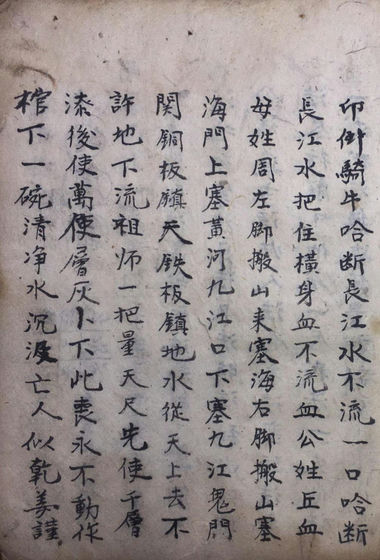 卯倒騎牛哈断長江水不流一口哈断
長江水把住橫身血不流血公姓丘血
母姓周左脚搬山来塞海右脚搬山塞
海門上塞黃河九江口下塞九江鬼門
関铜板鎮天鉄板鎮地水從天上去不
許地下流祖师一把量天尺先使千層
漆後使萬使層灰卜下此喪永不動作
棺下一碗清净水沉没亡人似乾姜謹